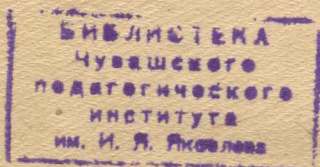 БИБЛИОТЕКА
Чувашского
педагогического
института
им. И. Я. Яковлева